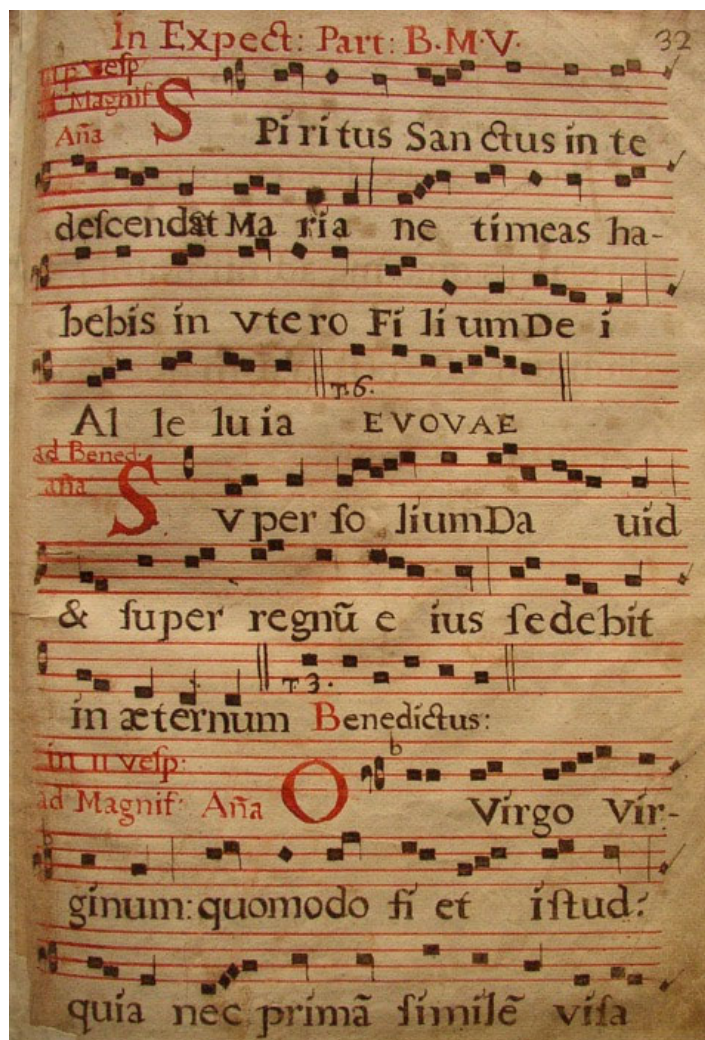 In Expect: Part: B·M·V·
32
in p Vesp
ad Magnif
Aña
SPiritus Sanctus in te
descendet Maria ne timeas ha-
bebis in vtero Filium Dei
T.6.
Alleluia EVOVAE
ad Bened:
aña
SVper solium Dauid
& super regnũ eius sedebit
T 3.
in æternum Benedictus:
in II vesp:
ad Magnif: Aña
O Virgo Vir-
ginum: quomodo fiet istud?
quia nec primã similẽ visa